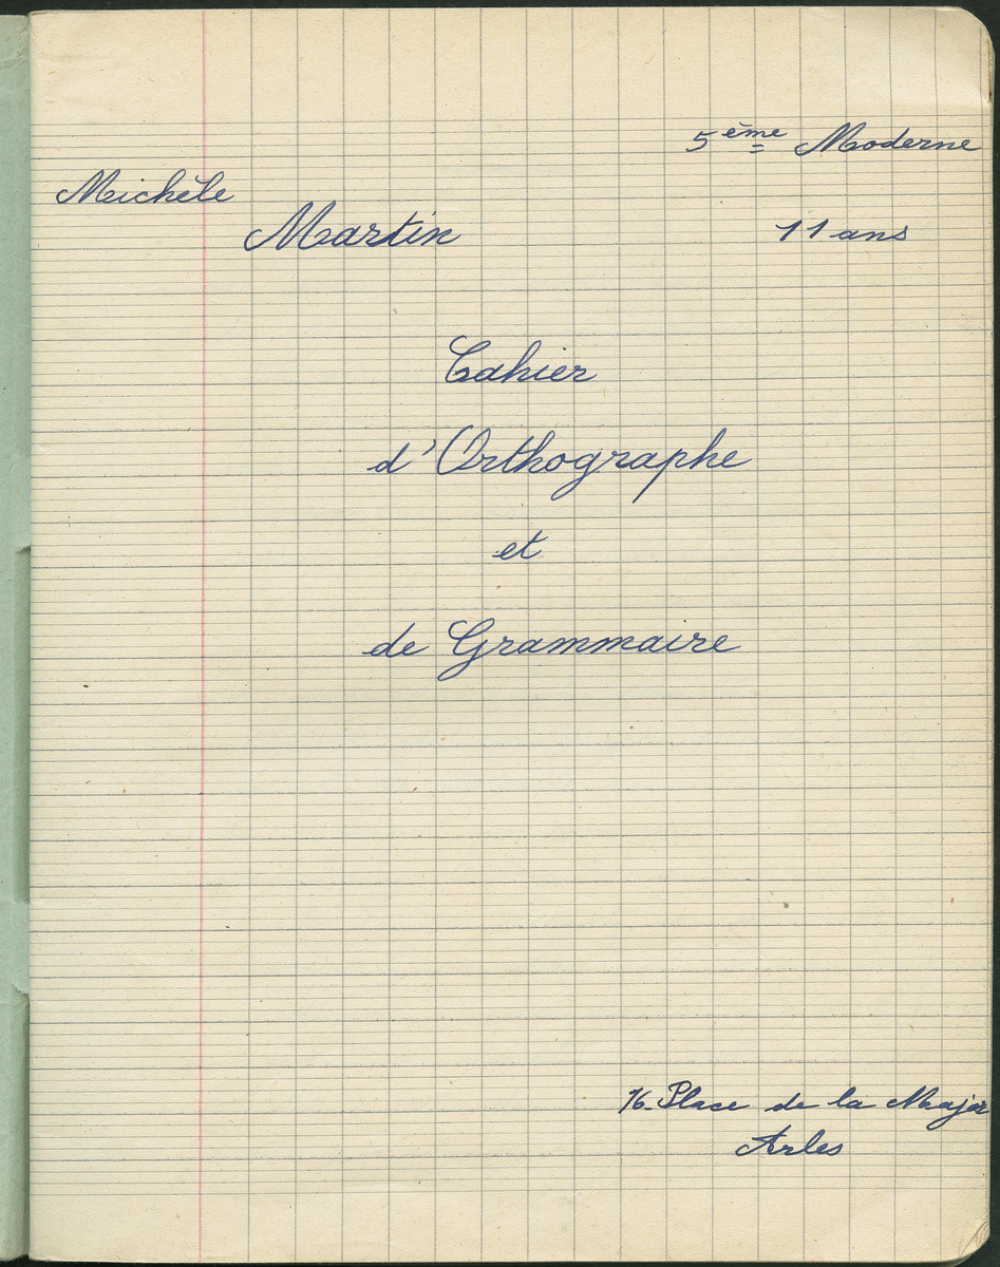 5ème Moderne
Michèle
Martin
11 ans
Cahier
d'Orthographe
et
de Grammaire
16. Place de la Major
Arles